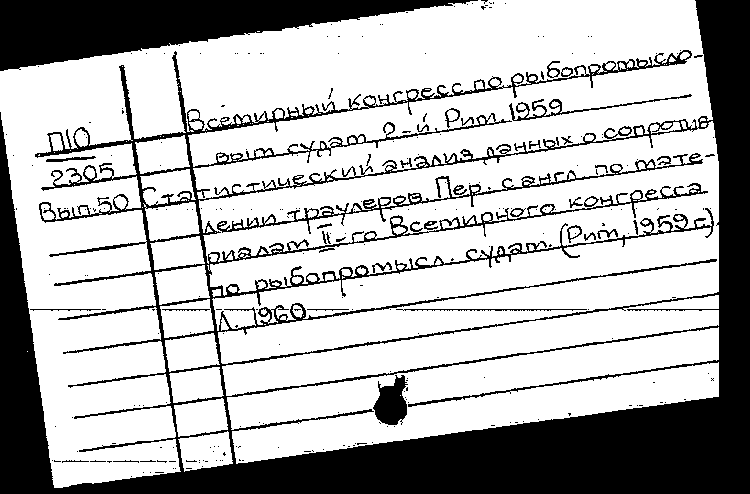 Всемирный конгресс по рыбопромысло-
П10 вым судам, 2-й. Рим. 1959
2305 Статистический анализ данных о сопротив-
Вып.50 лении траулеров. Пер. с англ. по мате-
риалам II-го Всемирного конгресса
по рыбопромысл. судам. (Рим, 1959 г.).
Л., 1960.